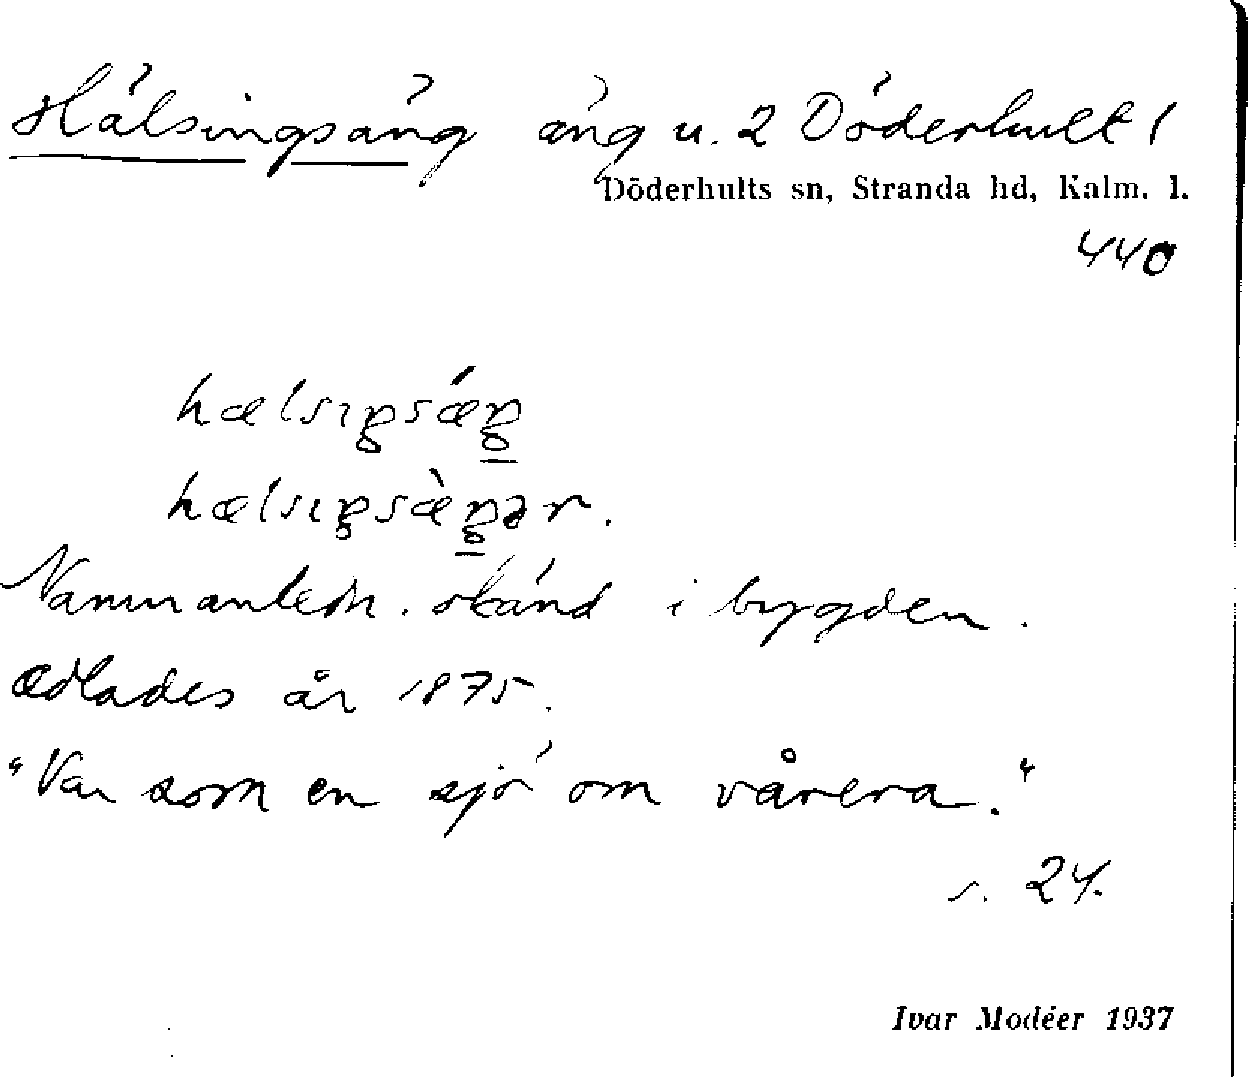 Hälsingsäng äng u. 2 Döderhult 1
Döderhults sn, Stranda hd, Kalm. l.
440
hælsıŋsǽŋ
hælsıŋsæ̀ŋər.
Namnanledn. okänd i bygden.
Odlades år 1875.
"Var som en sjö om vårera."
s. 24.
Ivar Modéer 1937